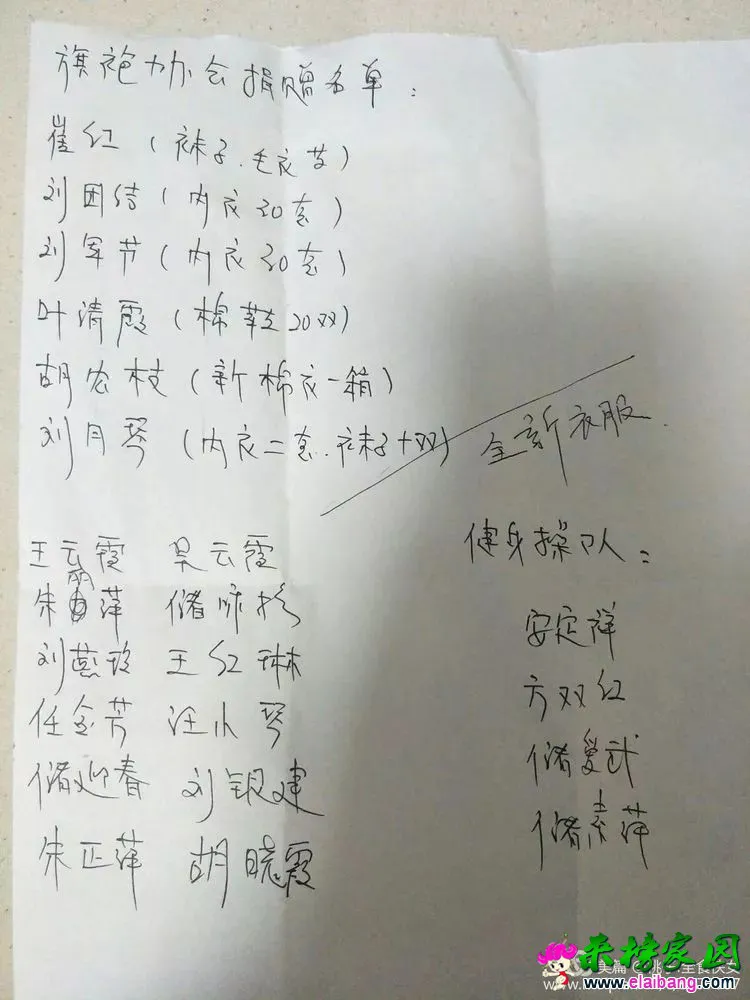 旗袍协会捐赠名单：
崔红（袜子.毛衣等）
刘团结（内衣30套）
刘军节（内衣30套）
叶清霞（棉鞋20双）
胡农枝（新棉衣一箱）
刘月琴（内衣二套.袜子十双）
全新衣服.
王云霞 吴云霞
朱丽萍 储咏梅
刘燕玲 王红琳
任金芳 汪小琴
储迎春 刘银建
朱正萍 胡晓霞
健身操队：
安定祥
方双红
储爱武
储素萍
来榜家园
www.elaibang.com
美篇